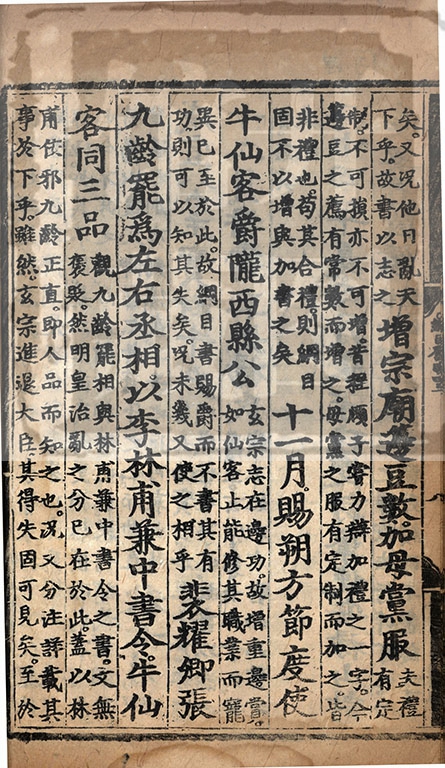 矣。又况他日亂天
下乎。故書以志之
增宗廟籩豆數。加母黨服
夫禮
有定
制。不可損亦不可增。昔程頤子嘗力辯加禮之一字。今
籩豆之薦有常數而增之。母黨之服有定制而加之。皆
非禮也。苟其合禮。則綱目
固不以增與加書之矣
十一月。賜朔方節度使
牛仙客爵隴西縣公
玄宗志在邊功。故增重邊賞。
如仙客止能修其職業而寵
異已至於此。故綱目書賜爵而不書其有
功。則可以知其失矣。况未幾又使之相乎
裴耀卿張
九齡罷爲左右丞相。以李林甫兼中書令。牛仙
客同三品
觀九齡罷相與林甫兼中書令之書。文無
褒貶。然明皇治亂之分已在於此。蓋以林
甫佞邪九齡正直。即人品而知之也。况又分注詳載其
事於下乎。雖然。玄宗進退大臣。其得失固可見矣。至於